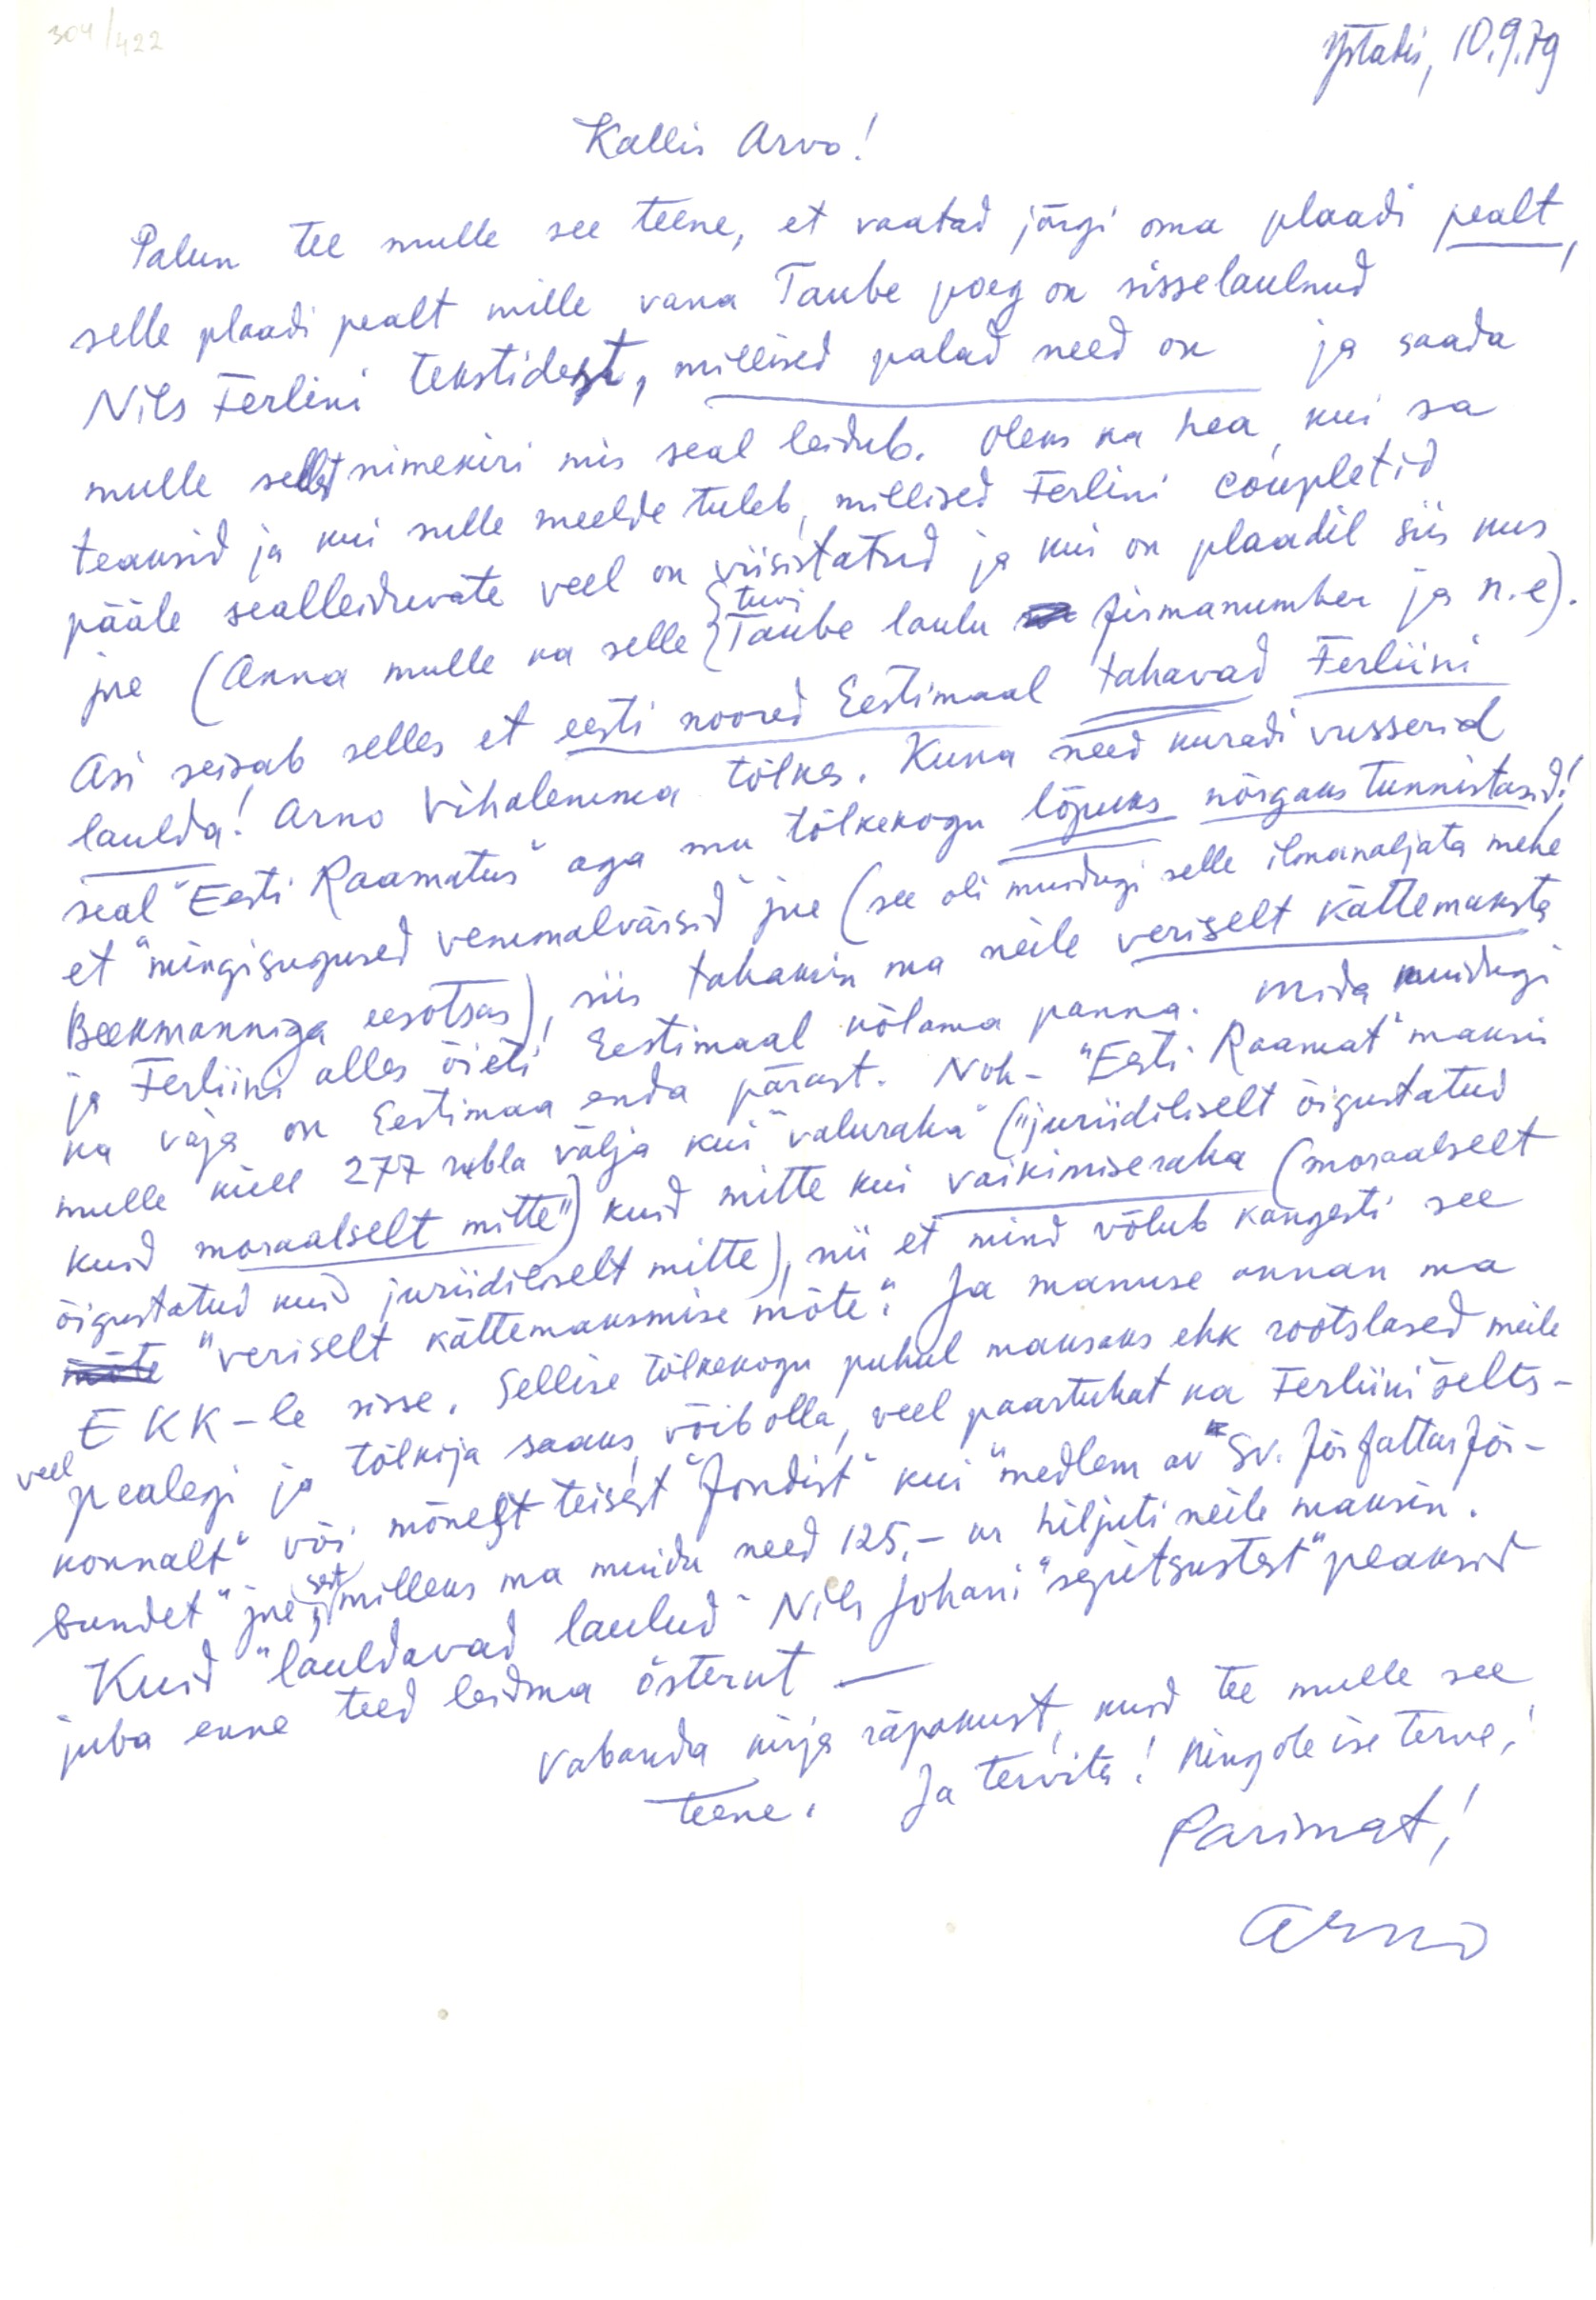 304/422
Ystadis, 10.9.79
Kallis Arvo!
Palun tee mulle see teene, et vaatad järgi oma plaadi pealt,
selle plaadi pealt mille vana Taube poeg on sisselaulnud
Nils Ferlini tekstidest, millised palad need on ja saada
mulle sellest nimekiri mis seal leidub. Oleks ka hea, kui sa
teaksid ja kui sulle meelde tuleb, millised Ferlini coupletid
pääle sealleiduvate veel on viisistatud ja kui on plaadil siis kus
jne (Anna mulle ka selle Taube laulu firmanumber ja n.e).
Asi seisab selles et eesti noored Eestimaal tahavad Ferliini
laulda! Arno Vihalemma tõlkes. Kuna need kuradi vusserid
seal "Eesti Raamatus" aga mu tõlkekogu lõpuks nõrgaks tunnistasid!
et "mingisugused vemmalvärsid" jne (see oli muidugi selle ilmanaljata mehe
Beekmanniga eesotsas), siis tahaksin ma neile veriselt kättemaksta
ja Ferliini alles õieti Eestimaal kõlama panna. Mida muidugi
ka vaja on Eestimaa enda pärast. Noh - "Eesti Raamat" maksis
mulle küll 277 rubla välja kui "valuraha" ("juriidiliselt õigustatud
kuid moraalselt mitte") kuid mitte kui vaikimiseraha (moraalselt
õigustatud kuid juriidiliselt mitte), nii et mind võlub kangesti see
mõte "veriselt kättemaksmise mõte". Ja manuse annan ma
EKK-le sisse. Sellise tõlkekogu puhul maksaks ehk rootslased meile
veel pealegi ja tõlkija saaks, võibolla, veel paartuhat ka Ferliini selts-
konnalt" või mõnest teisest "fondist" kui "medlem av Sv. författarför-
bundet" jne, sest milleks ma muidu need 125,- kr hiljuti neile maksin.
Kuid "lauldavad laulud" Nils Johani "sepitsustest" peaksid
juba enne teed leidma österut —
Vabanda kirja räpakust, kuid tee mulle see
teene. Ja tervita! Ning ole ise terve!
Parimat!
Arno